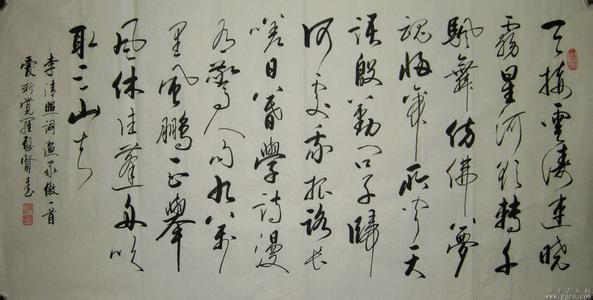 天接雲濤連曉
霧星河欲轉千
帆舞彷彿夢
魂歸帝所聞天
語殷勤問予歸
何處我報路長
嗟日暮學詩漫
有驚人句九萬
里風鵬正舉
風休住蓬舟吹
取三山去
李清照詞漁家傲一首
覺羅 賢書